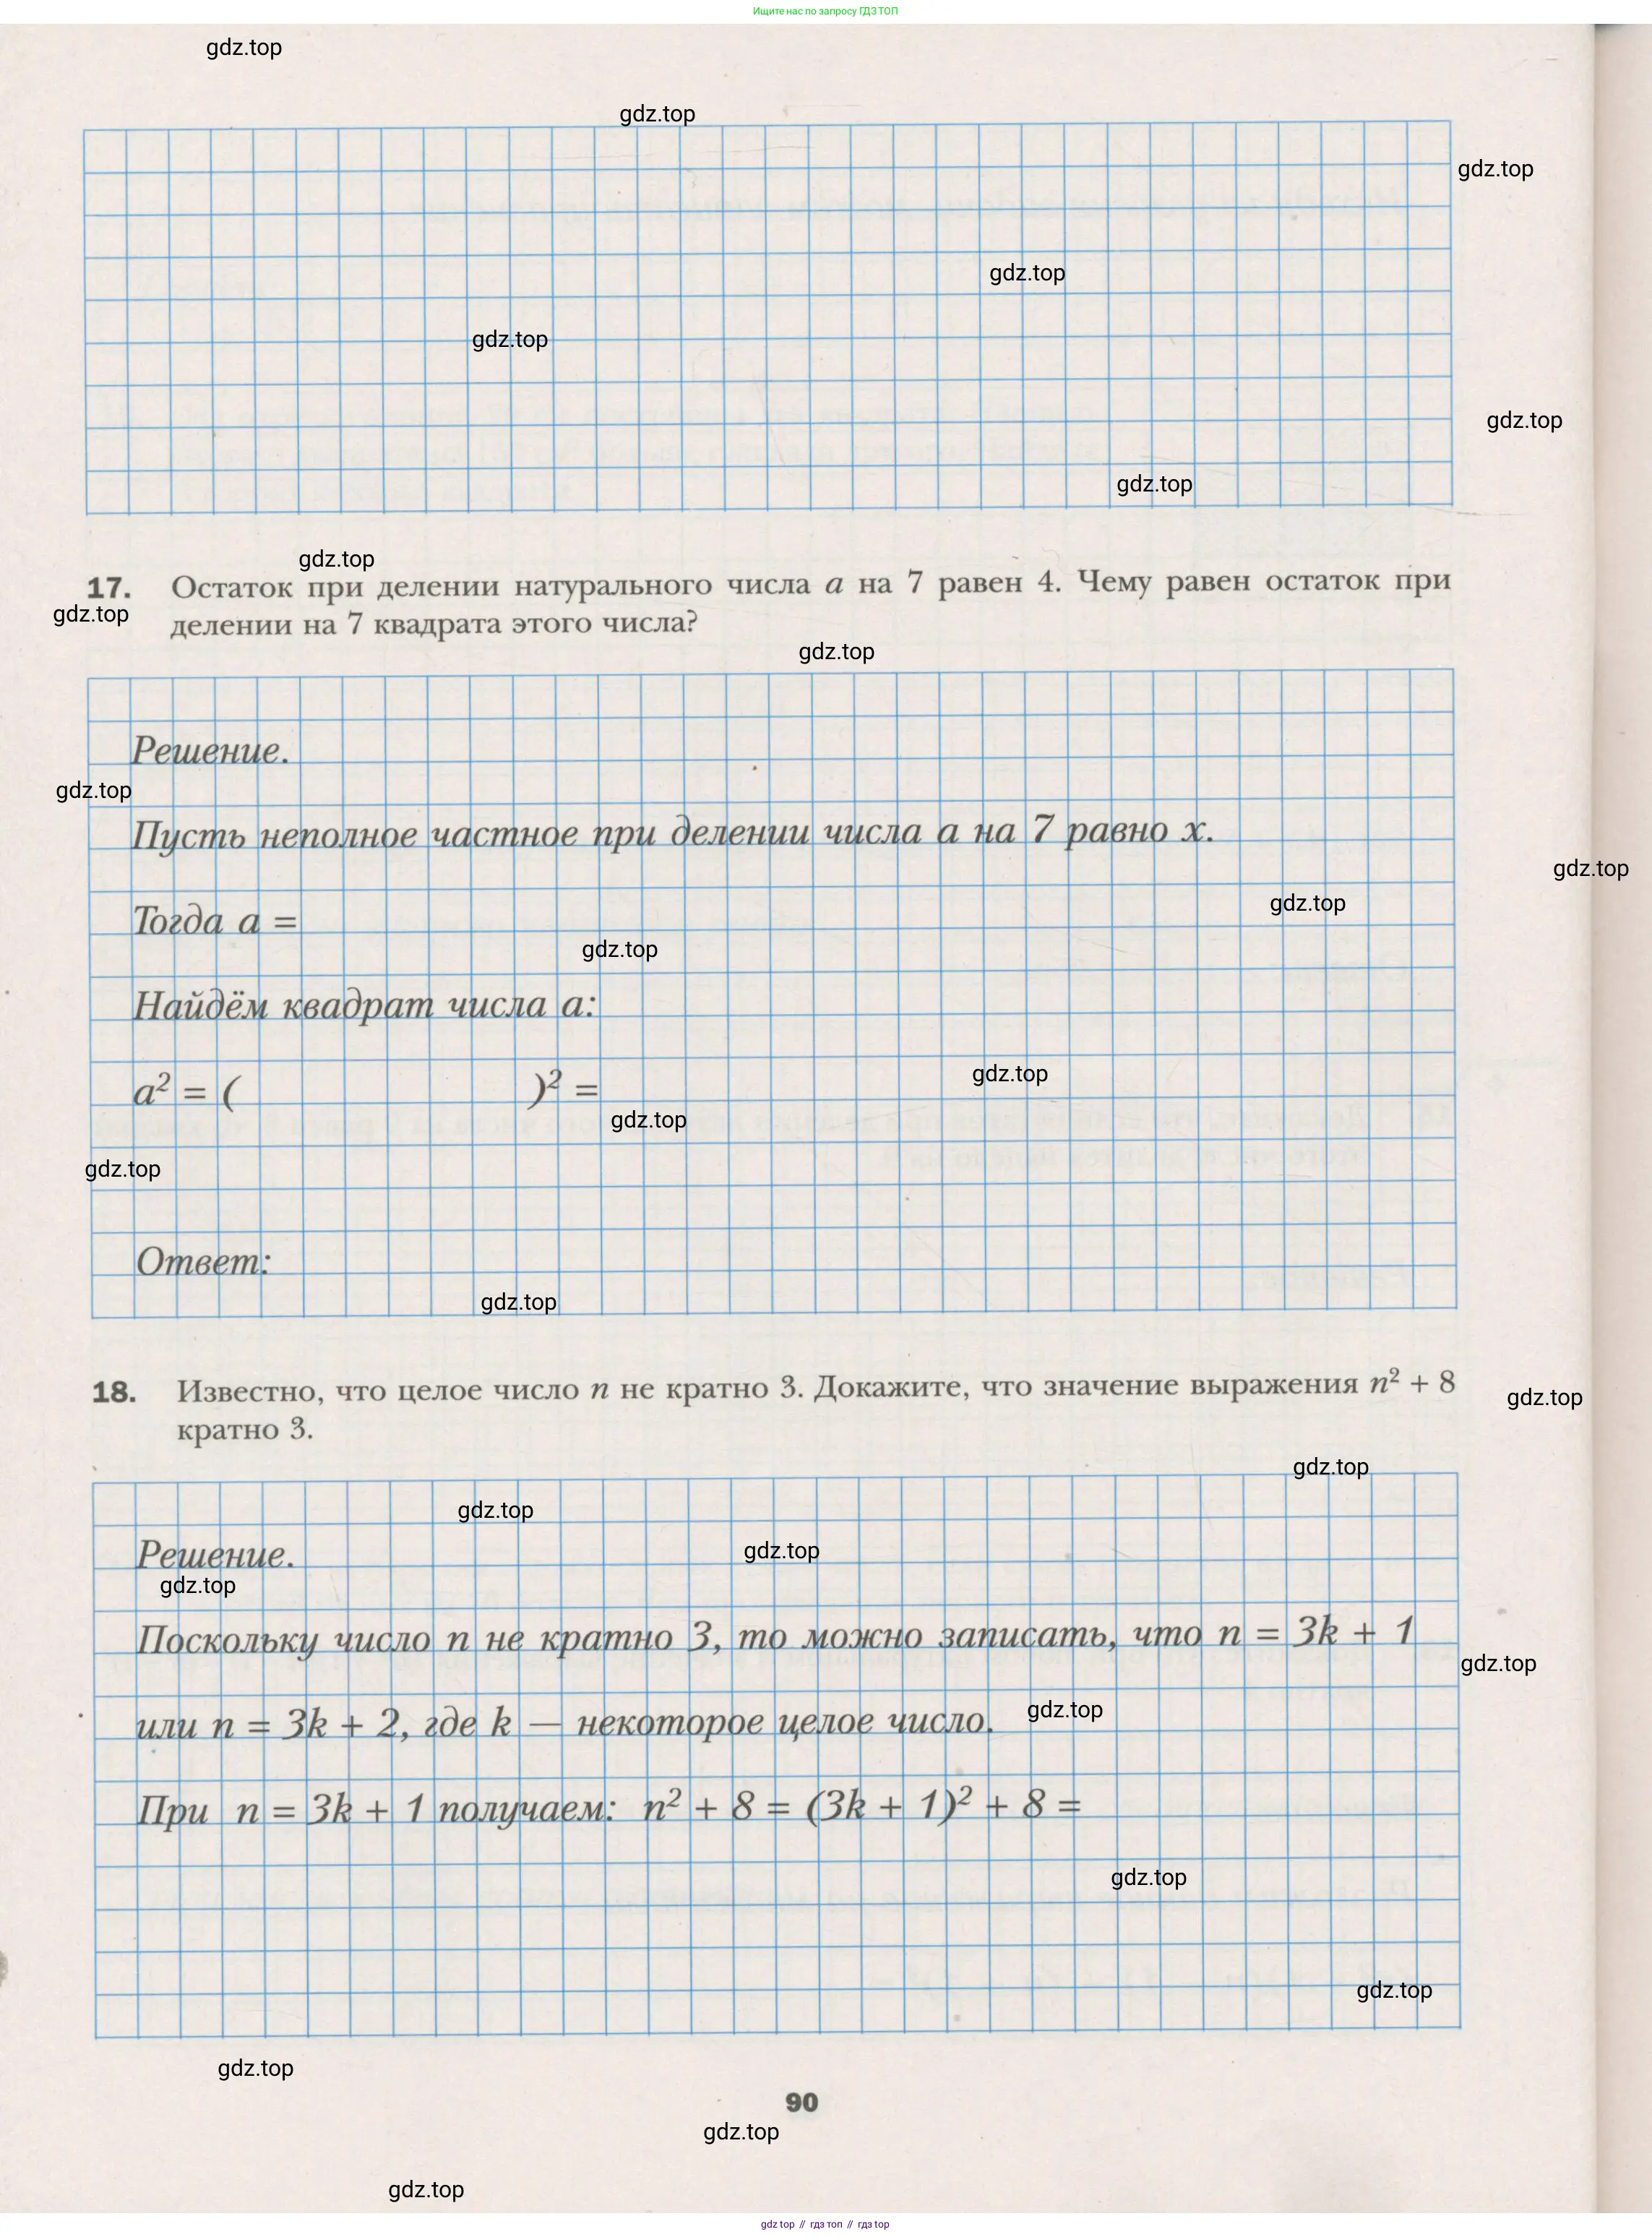 Ищите нас по запросу ГДЗ ТОП
gdz.top
gdz.top
gdz.top
gdz.top
gdz.top
gdz.top
gdz.top
gdz.top
17. Остаток при делении натурального числа a на 7 равен 4. Чему равен остаток при
gdz.top
делении на 7 квадрата этого числа?
gdz.top
Решение.
gdz.top
Пусть неполное частное при делении числа a на 7 равно x.
gdz.top
gdz.top
Тогда a =
gdz.top
Найдём квадрат числа a:
gdz.top
a² = ( )² =
gdz.top
gdz.top
Ответ:
gdz.top
18. Известно, что целое число n не кратно 3. Докажите, что значение выражения n² + 8
gdz.top
кратно 3.
gdz.top
gdz.top
gdz.top
Решение.
gdz.top
Поскольку число n не кратно 3, то можно записать, что n = 3k + 1
gdz.top
gdz.top
или n = 3k + 2, где k — некоторое целое число.
При n = 3k + 1 получаем: n² + 8 = (3k + 1)² + 8 =
gdz.top
gdz.top
gdz.top
90
gdz.top
gdz.top
gdz top // гдз топ // гдз top